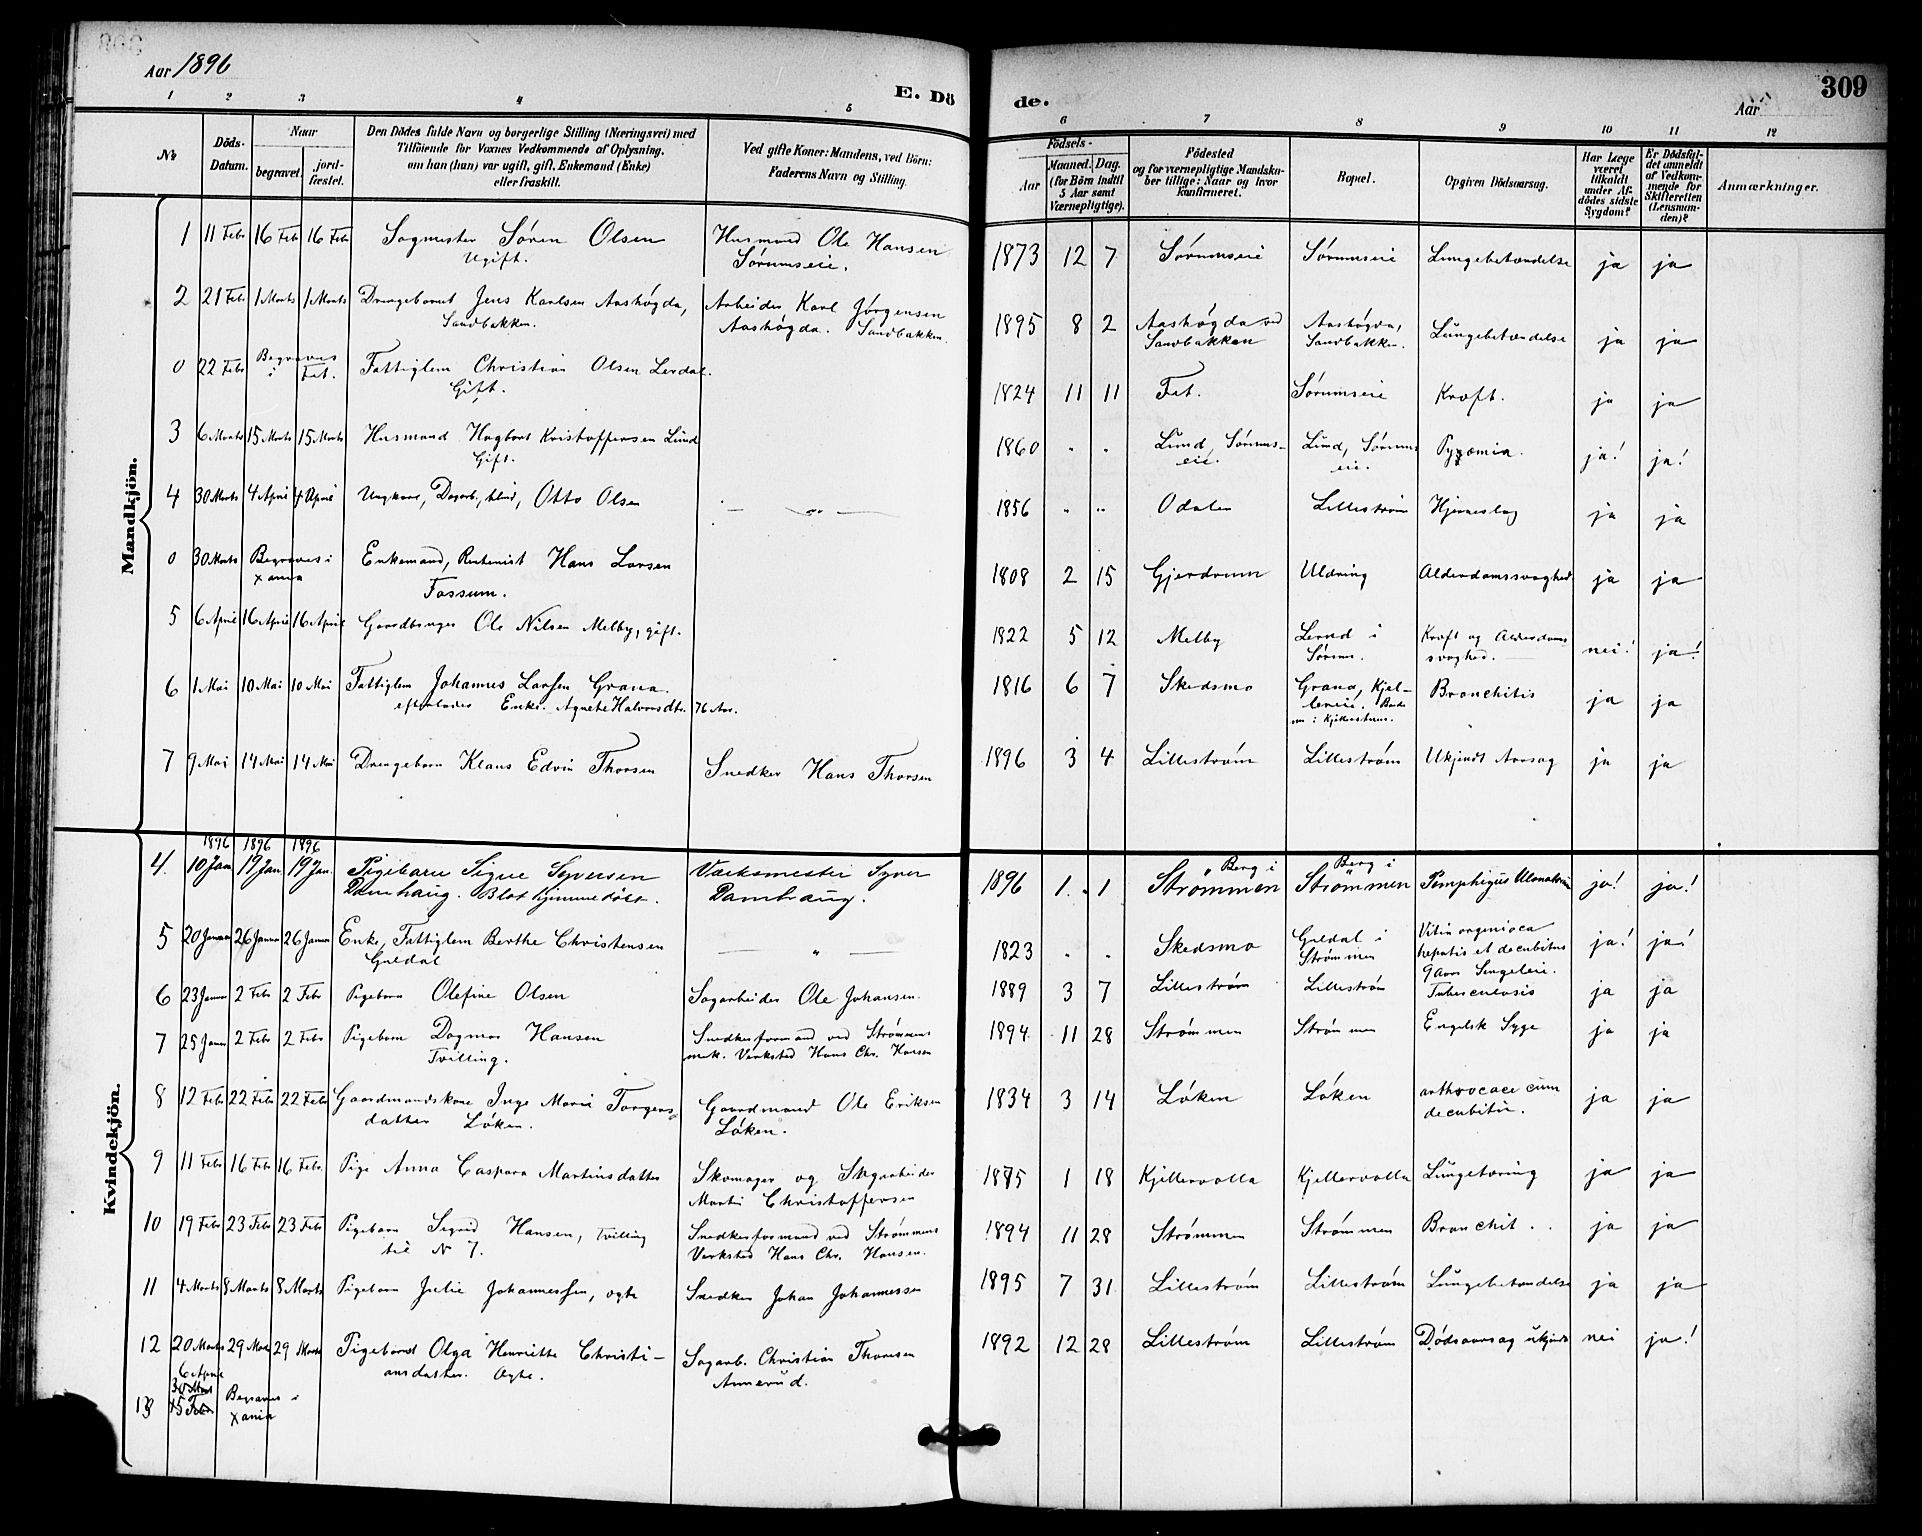 Aar 1896
E. Dö
de.
Aar
309
1 2 3 4 5
6 7 8 9 10 11 12
No
Döds-Datum.
Naar
begravet.
jord-fæstet.
Den Dödes fulde Navn og borgerlige Stilling (Næringsvei) med
Tilföiende for Voxnes Vedkommende af Oplysning,
om han (hun) var ugift, gift, Enkemand (Enke)
eller fraskilt.
Ved gifte Koner: Mandens, ved Börn:
Faderens Navn og Stilling.
Födsels-
Aar
Maaned. Dag.
(for Börn indtil
5 Aar samt
Værnepligtige).
Födested
og for værnepligtige Mandskaber tillige: Naar og hvor
konfirmeret.
Bopæl.
Opgiven Dödsaarsag.
Har Læge
været
tilkaldt
under Afdödes sidste
Sygdom?
Er Dödsfaldet anmeldt
af Vedkommende for
Skifteretten
(Lensmanden)?
Anmærkninger.
Mandkjön.
1 11 Febr 16 Febr 16 Febr Sagmester Søren Olsen Husmand Ole Hansen 1873 12 7 Sørumseie Sørumseie Lungebetændelse ja ja
Ugift. Sørumseie.
2 21 Febr 1 Marts 1 Marts Drengebarnet Jens Karlsen Aashøgda, Arbeider Karl Jørgensen 1895 8 2 Aashøgda ved Aashøgda, Lungebetændelse ja ja
Sandbakken. Aashøgda. Sandbakken. Sandbakken Sandbakken.
0 22 Febr Begraves i Fet. Fattiglem Christian Olsen Lerdal. 1824 11 11 Fet. Sørumseie Kræft. ja ja
Gift.
3 6 Marts 15 Marts 15 Marts Husmand Hagbart Kristoffersen Lund 1860 " " Lund, Sørums- Lund, Sørums Pyæmia. ja! ja!
Gift. eie. eie.
4 30 Marts 4 April 4 April Ungkarl, Dagarb., blind, Otto Olsen — " — 1856 " " Odalen Lillestrøm Hjerneslag ja ja
0 30 Marts Begraves i Xania Enkemand, Rentenist Hans Larsen 1808 2 15 Gjerdrum Uldring Alderdomssvaghed ja ja
Fossum.
5 6 April 16 April 16 April Gaardbruger Ole Nilsen Melby, gift. 1822 5 12 Melby Lerud i Kræft og Alderdoms nei! ja!
Sørum. svaghed.
6 1 Mai 10 Mai 10 Mai Fattiglem Johannes Larsen Grana. 1816 6 7 Skedsmo Grana, Kjel- Bronchitis ja ja
efterlader Enke. Agnethe Halvorsdtr. 76 Aar. lereie.
7 9 Mai 14 Mai 14 Mai Drengebarn Klaus Edvin Thorsen Snedker Hans Thorsen 1896 3 4 Lillestrøm Lillestrøm Ukjendt Aarsag ja ja
Kvindekjön.
1896 1896 1896
4. 10 Jan 19 Jan. 19 Jan. Pigebarn Signe Syversen Værksmester Syver 1896 1. 1 Berg i Strømmen Berg i Strømmen Pemphigus ja! ja!
Damhaug. Blot hjemmedøbt. Damhaug.
5 20 Januar 26 Januar 26 Januar Enke, Fattiglem Berthe Christensen — " — 1823 " " Skedsmo Guldal i Vitia organica ja! ja!
Guldal Strømmen hepatis et decubitus
9 Aars Sengeleie.
6 23 Januar 2 Febr 2 Febr Pigebarn Olefine Olsen Sagarbeider Ole Johansen. 1889 3 7 Lillestrøm Lillestrøm Tuberculosis ja ja
7 25 Januar 2 Febr 2 Febr Pigebarn Dagmar Hansen Snedkerformand ved Strømmens 1894 11 28 Strømmen Strømmen Engelsk Syge ja ja
Tvilling. mek. Verksted Hans Chr. Hansen
8 12 Febr 22 Febr 22 Febr Gaardmandskone Inge Marie Torgers- Gaardmand Ole Eriksen 1834 3 14 Løken Løken arthrocace cum ja ja
datter Løken. Løken. decubitu.
9 11 Febr 16 Febr 16 Febr. Pige Anna Caspara Martinsdatter Skomager og Sagarbeider 1875 1 18 Kjellervolla Kjellervolla Lungetæring ja ja
Martin Christoffersen
10 19 Febr 23 Febr 23 Febr Pigebarn Sigrid Hansen, Tvilling Snedkerformand ved Strømmens 1894 11 28 Strømmen Strømmen Bronchit. ja ja
til N 7. Verksted Hans Chr. Hansen.
11 4 Marts 8 Marts 8 Marts Pigebarn Julie Johannessen, ægte Snedker Johan Johannessen 1895 7 31 Lillestrøm Lillestrøm Lungebetændelse ja ja
12 20 Marts 29 Marts 29 Marts Pigebarnet Olga Henriette Christi- Sagarb. Christian Thoresen 1892 12 28 Lillestrøm Lillestrøm Dødsaarsag ukjendt nei ja!
ansdatter. Ægte. Annerud.
6 April
30 Mars
13 15 Febr Begraves i
Xania